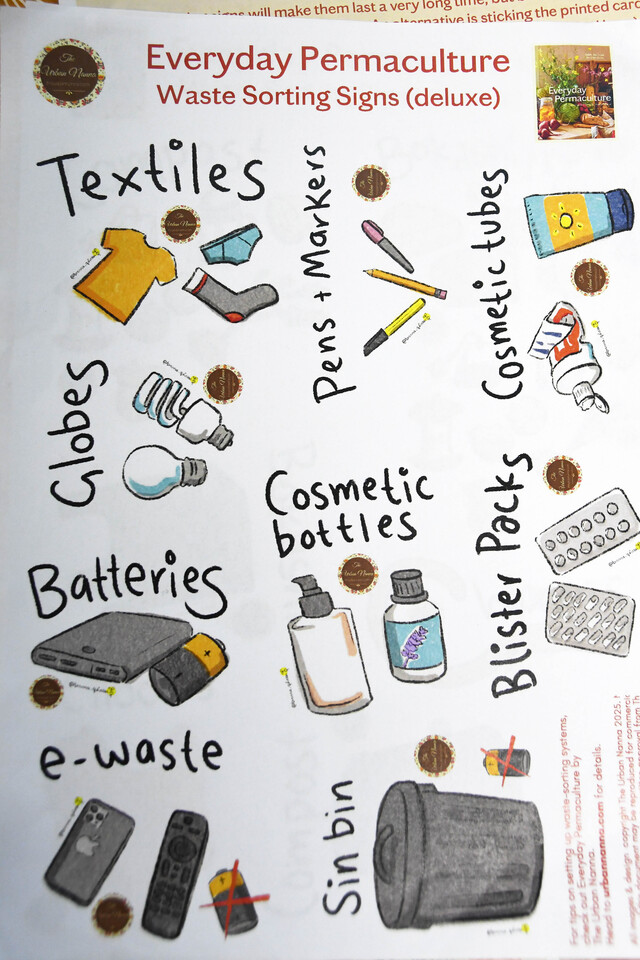 signs will make them last a very long time, but
An alternative is sticking the printed card
The
Urban Nanna
Everyday Permaculture
Waste Sorting Signs (deluxe)
Everyday
Permaculture
Textiles
Pens + Markers
Cosmetic tubes
Globes
Cosmetic
bottles
Blister Packs
Batteries
e-waste
Sin bin
For tips on setting up waste-sorting systems,
check out Everyday Permaculture by
The Urban Nanna.
Head to urbannanna.com for details.
All images & design copyright The Urban Nanna 2025.
may be reproduced for commercial
from Th